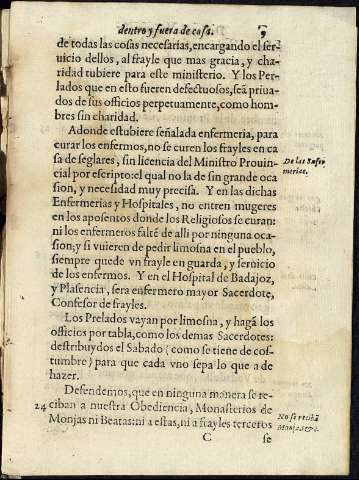 dentro y fuera de casa. 9
de todas las cosas necesarias, encargando el ser-
uicio dellos, al frayle que mas gracia, y cha-
ridad tubiere para este ministerio. Y los Per-
lados que en esto fueren defectuosos, seã priua-
dos de sus officios perpetuamente, como hom-
bres sin charidad.
Adonde estubiere señalada enfermeria, para
curar los enfermos, no se curen los frayles en ca
sa de seglares, sin licencia del Ministro Prouin-
cial por escripto: el qual no la de sin grande oca
sion, y necesidad muy precisa. Y en las dichas
Enfermerias y Hospitales, no entren mugeres
en los aposentos donde los Religiosos se curan:
ni los enfermeros faltẽ de alli por ninguna oca-
sion; y si vuieren de pedir limosna en el pueblo,
siempre quede vn frayle en guarda, y seruicio
de los enfermos. Y en el Hospital de Badajoz,
y Plasencia, sera enfermero mayor Sacerdote,
Confesor de frayles.
De las Enfer
merias.
Los Prelados vayan por limosna, y hagã los
officios por tabla, como los demas Sacerdotes:
destribuydos el Sabado (como se tiene de cos-
tumbre) para que cada vno sepa lo que a de
hazer.
Defendemos, que en ninguna manera se re-
24 ciban a nuestra Obediencia, Monasterios de
Monjas ni Beatas: ni a estas, ni a frayles terceros
No se recibã
Monjas &c.
C se